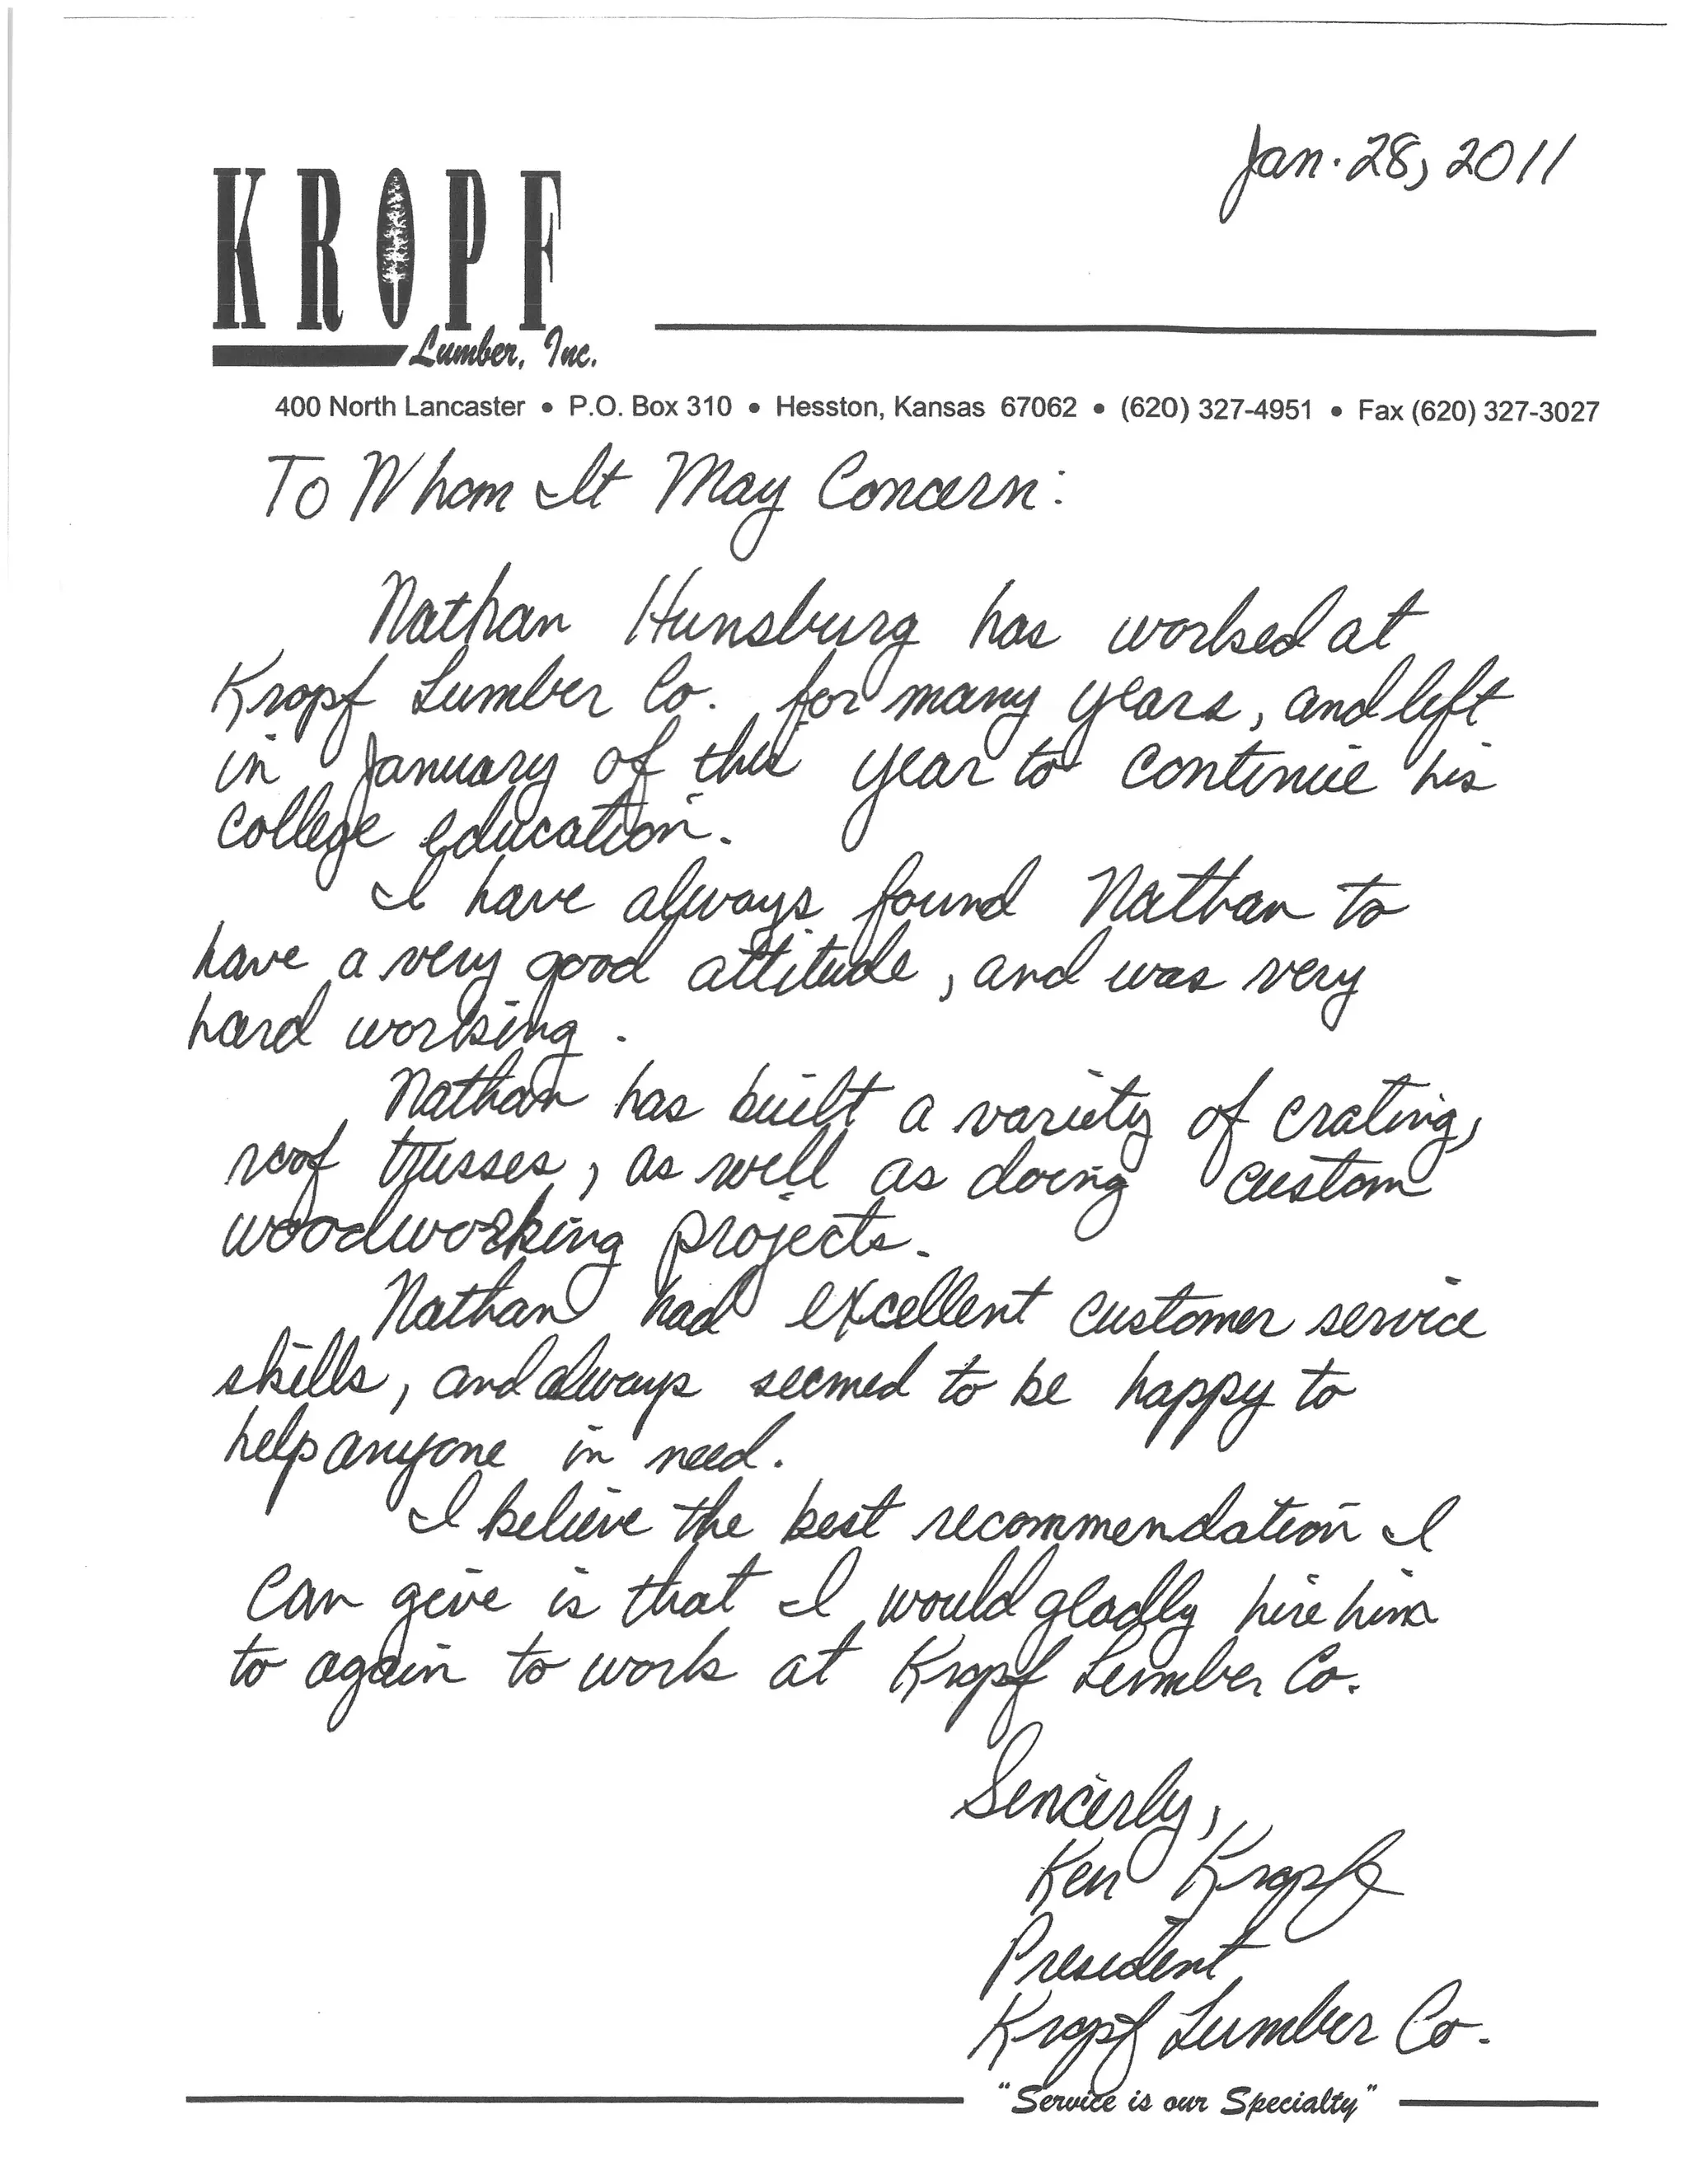 Jan. 28, 2011
KROPF
Lumber, Inc.
400 North Lancaster • P.O. Box 310 • Hesston, Kansas 67062 • (620) 327-4951 • Fax (620) 327-3027
To Whom It May Concern:
Nathan Hunsburg has worked at
Kropf Lumber Co. for many years, and left
in January of this year to continue his
college education.
I have always found Nathan to
have a very good attitude, and was very
hard working.
Nathan has built a variety of crating,
roof trusses, as well as doing custom
woodworking projects.
Nathan had excellent customer service
skills, and always seemed to be happy to
help anyone in need.
I believe the best recommendation I
can give is that I would gladly hire him
to again to work at Kropf Lumber Co.
Sencerly,
Ken Kropf
President
Kropf Lumber Co.
"Service is our Specialty"